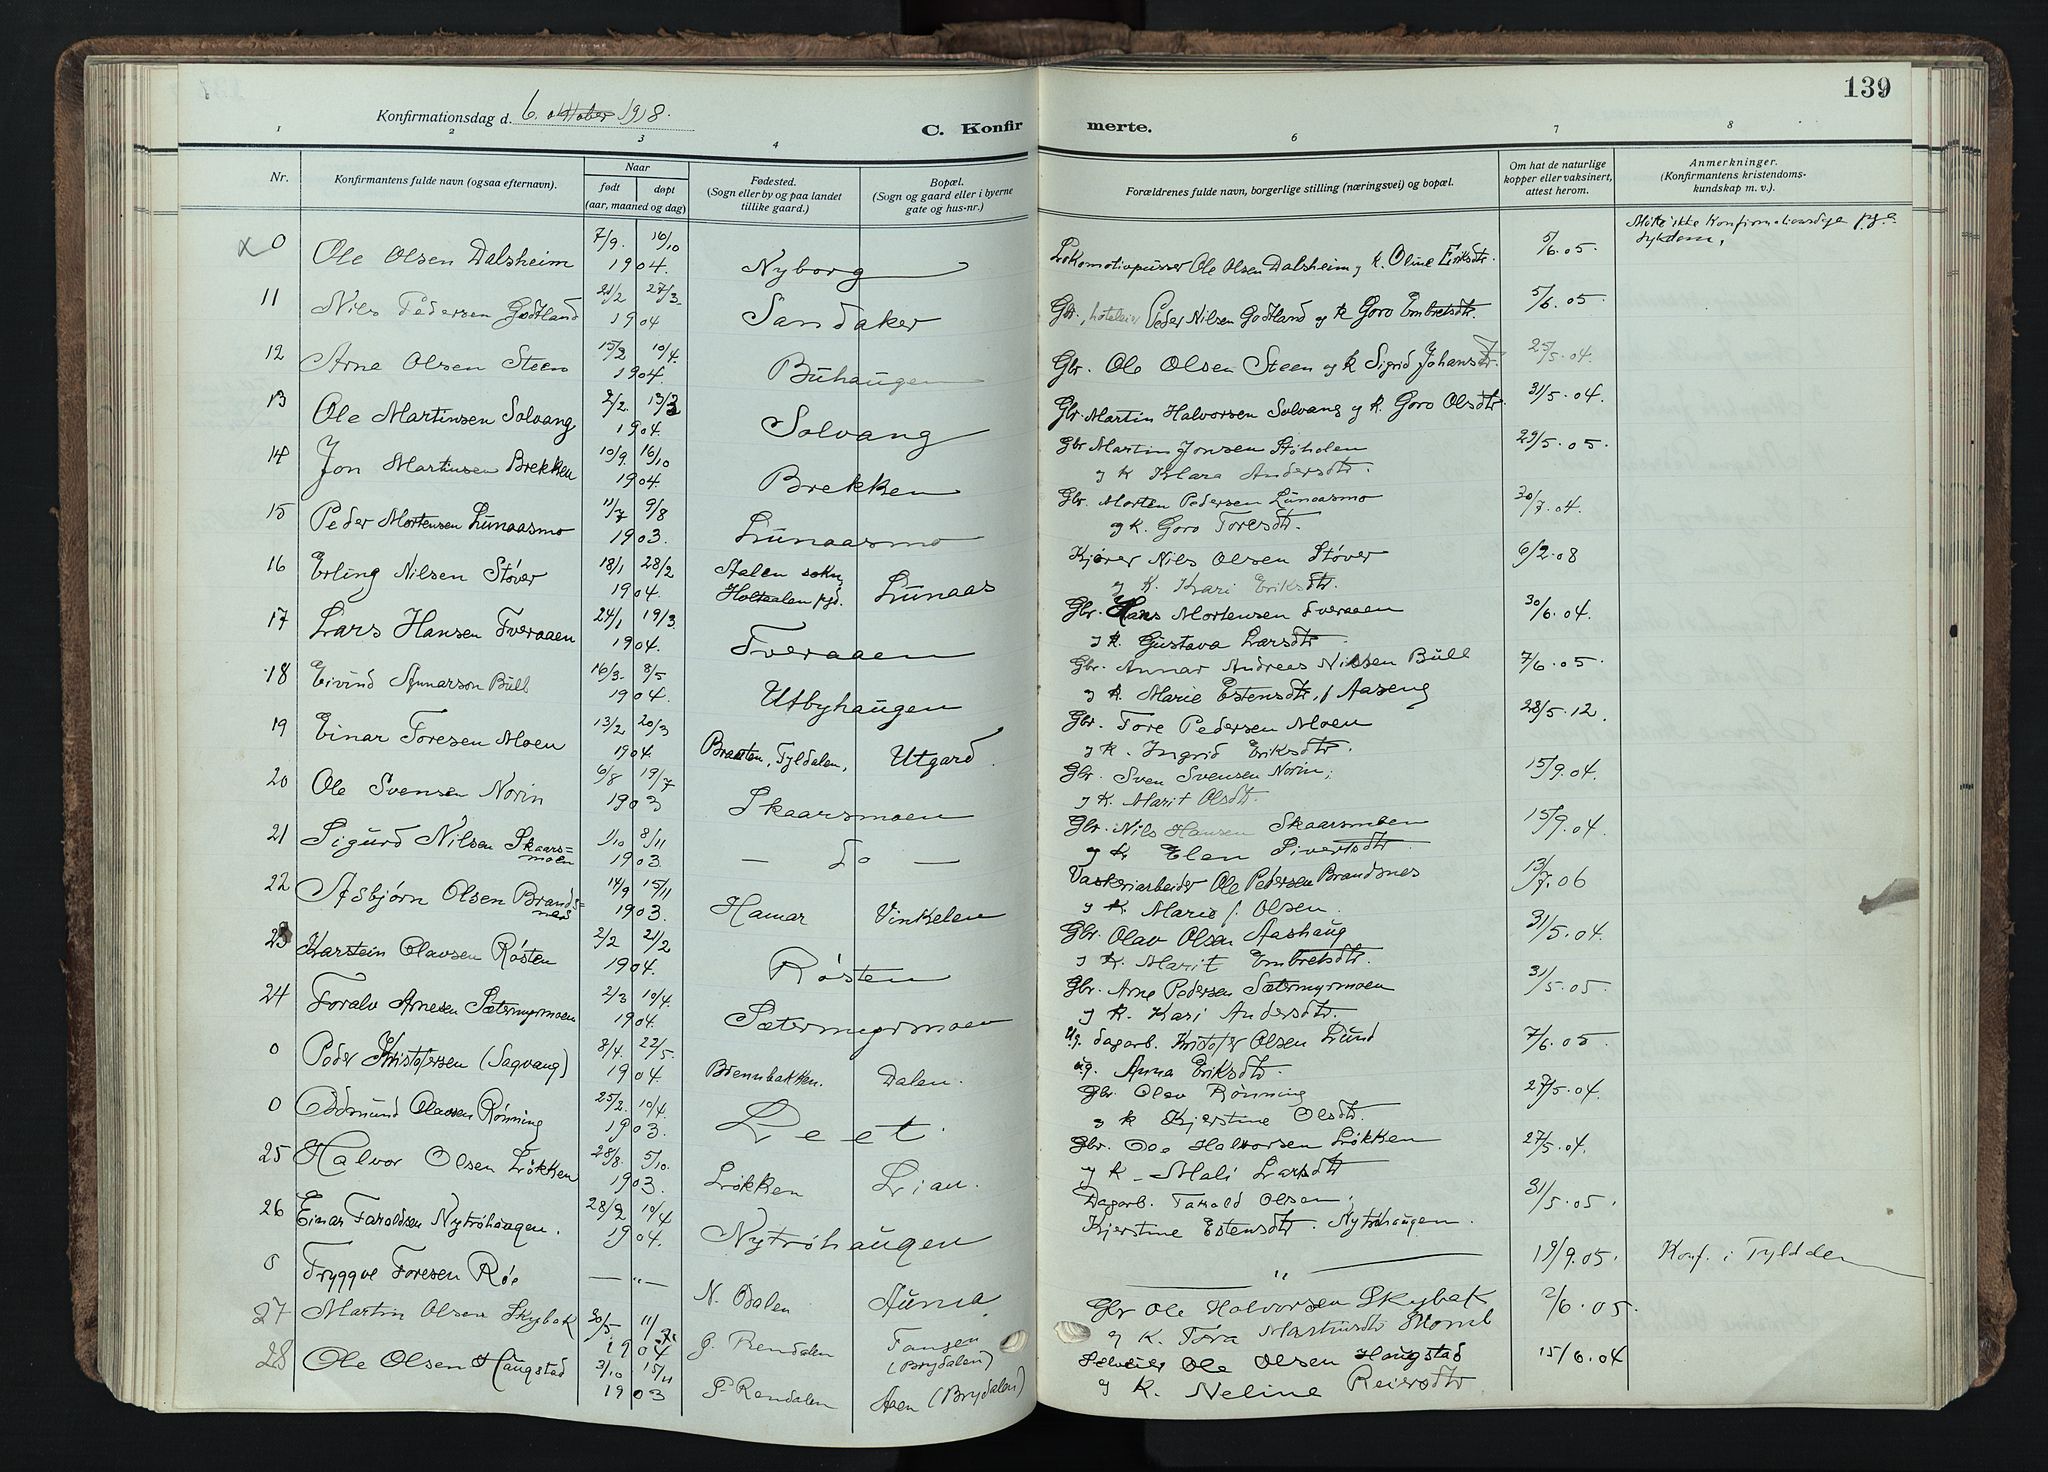 139
Konfirmationsdag d. 6. oktober 1918.
C. Konfirmerte.
1 2 3 4 6 7 8
Nr.
Konfirmantens fulde navn (ogsaa efternavn).
Naar
født døpt
(aar, maaned og dag)
Fødested.
(Sogn eller by og paa landet
tillike gaard.)
Bopæl.
(Sogn og gaard eller i byerne
gate og hus-nr.)
Forældrenes fulde navn, borgerlige stilling (næringsvei) og bopæl.
Om hat de naturlige
kopper eller vaksinert,
attest herom.
Anmerkninger.
(Konfirmantens kristendoms-
kundskap m. v.).
x 0 Ole Olsen Dalsheim 7/9. 16/10 1904. Nyborg Lokomotivpusser Ole Olsen Dalsheim og k. Oline Eriksdtr. 5/6.05. Møtte ikke Konfirmationsdagen p.g.a.
sykdom.
11 Nils Pedersen Godtland 21/2 27/3 1904 Sandaker Gbr., hoteleier Peder Nilsen Godtland og k Goro Embretsdtr. 5/6.05.
12 Arne Olsen Steen 15/2 10/4. 1904. Buhaugen Gbr. Ole Olsen Steen og k Sigrid Johansdtr. 25/5.04.
13 Ole Martinsen Solvang 2/2. 13/3 1904. Solvang Gbr. Martin Halvorsen Solvang og k. Goro Olsdtr. 31/5.04.
14 Jon Martinsen Brekken 10/9. 16/10 1904. Brekken Gbr Martin Jonsen Støholen
og k Klara Andersdtr. 29/5.05.
15 Peder Mortensen Lunaasmo 11/7 9/8 1903. Lunaasmo Gbr. Morten Pedersen Lunaasmo
og k. Goro Toresdtr. 20/7.04.
16 Erling Nilsen Støver 18/1 28/2 1904. Aalen sokn,
Holtaalen pgd. Lunaas Kjører Nils Olsen Støver
og K. Kari Eriksdtr. 6/2.08
17 Lars Hansen Tveraaen 24/1 19/3. 1904. Tveraaen Gbr. Hans Mortensen Tveraaen
og k. Gustava Larsdtr 30/6.04.
18 Eivind Annarson Bull 16/3. 8/5 1904. Utbyhaugen Gbr. Annar Andreas Nilsen Bull
og k. Marie Estensdtr, f Aaseng 7/6.05.
19 Einar Toresen Moen 13/2 20/3 1904. Braaten, Tyldalen, Utgard. Gbr. Tore Pedersen Moen
og k. Ingrid Eriksdtr. 28/5.12.
20 Ole Svensen Norin 6/8 19/7 1903 Skaarsmoen Gbr. Sven Svensen Norin,
og K. Marit Olsdtr. 15/9.04.
21 Sigurd Nilsen Skaars=
moen 1/10 8/11 1903. — do — Gbr. Nils Hansen Skaarsmoen
og k Elen Sivertsdtr. 15/9.04.
22 Asbjørn Olsen Brands=
nes 14/9 15/11 1903. Hamar Vinkelen Vaskeriarbeider Ole Pedersen Brandsnes
og k Marie f. Olsen. 13/7.06
23 Karstein Olavsen Røsten 2/2 21/2 1904. Røsten Gbr. Olav Olsen Aashaug
og k. Marit Embretsdtr. 31/5.04.
24 Toralv Arnesen Sætermyrmoen 2/3 10/4. 1904. Sætermyrmoen Gbr. Arne Pedersen Sætermyrmoen
og k. Kari Andersdtr. 31/5.05.
0 Peder Kristofersen (Sagvang) 8/4. 22/5. 1904 Brennbakken. Dalen. Ug. dagarb. Kristofer Olsen Lund
ug. Anna Eriksdtr. 7/6.05.
0 Odmund Olavsen Rønning 25/2. 10/4. 1903. Leet. Gbr Olav Rønning
og k Kjerstine Olsdtr. 27/5.04.
25 Halvor Olsen Løkken 28/8. 5/10. 1903. Løkken Lian. Gbr. Ole Halvorsen Løkken
og k - Mali Larsdtr 27/5.04.
26 Einar Taraldsen Nytrøhaugen. 28/2 10/4 1904. Nytrøhaugen Dagarb. Tarald Olsen.
Kjerstine Estensdtr. Nytrøhaugen. 31/5.05.
0 Tryggve Toresen Røe — " — " 19/9.05. Konf. i Tyldalen
27 Martin Olsen Skybak 30/5. 1904 N. Odalen Auma Gbr Ole Halvorsen Skybak
og K. Tora Martinsdtr 2/6.05.
28 Ole Olsen Haugstad 3/10 15/11 1903 G. Rendalen
S. Rendalen Tangen
(Brydalen)
Aaen (Brydalen) Selveier Ole Olsen Haugstad
og K. Neline Reiersdtr 15/6.04